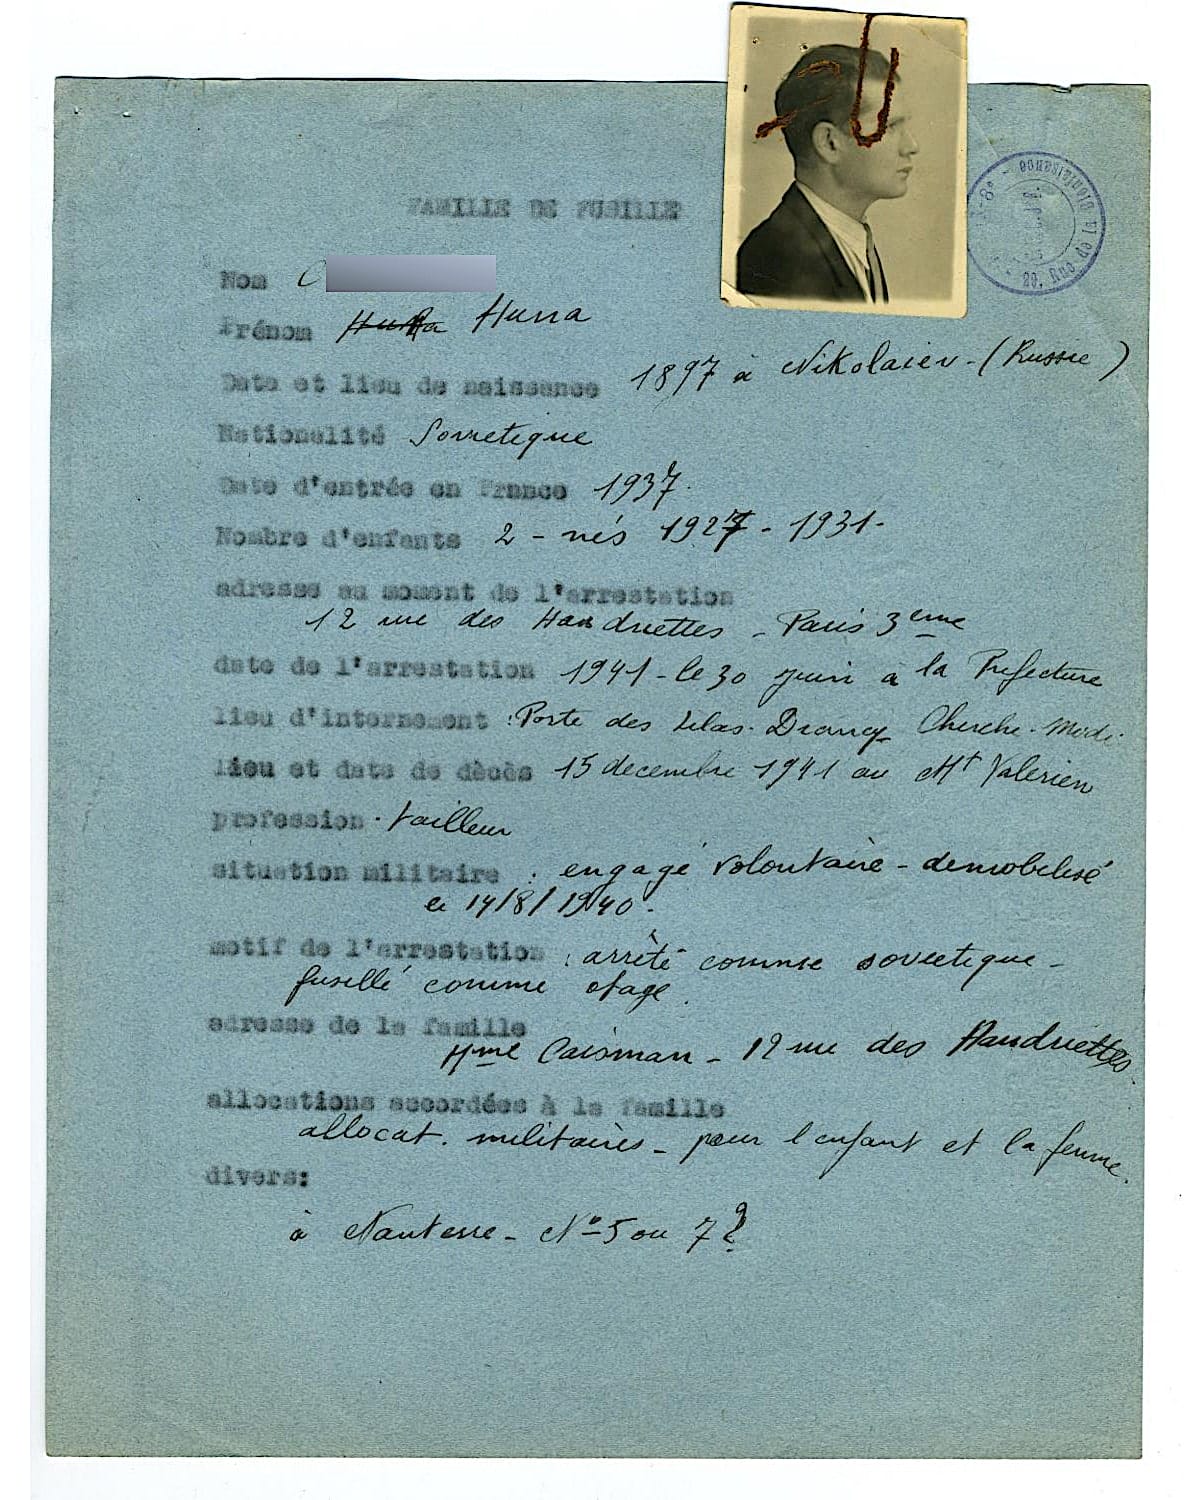 FAMILLE DE FUSILLE
Nom C
Prénom Hussa
Date et lieu de naissance 1897 à Nikolaiev - (Russie)
Nationalité Sovietique
Date d'entrée en France 1937.
Nombre d'enfants 2 - nés 1927 - 1931-
adresse au moment de l'arrestation
12 rue des Haudriettes - Paris 3eme
date de l'arrestation 1941 - le 30 juin à la Prefecture
lieu d'internement : Porte des Lilas. Drancy Cherche-Midi
lieu et date de décès 15 decembre 1941 au Mt Valerien
profession . tailleur
situation militaire : engagé volontaire - demobilisé
le 14/8/1940.
motif de l'arrestation : arrêté comme sovietique -
fusillé comme otage.
adresse de la famille
Mme Caisman - 12 rue des Haudriettes.
allocations accordées à la famille
allocat. militaires - pour l'enfant et la femme.
divers:
à Nanterre - No 5 ou 7?
20, Rue de la Bienfaisance - 8e